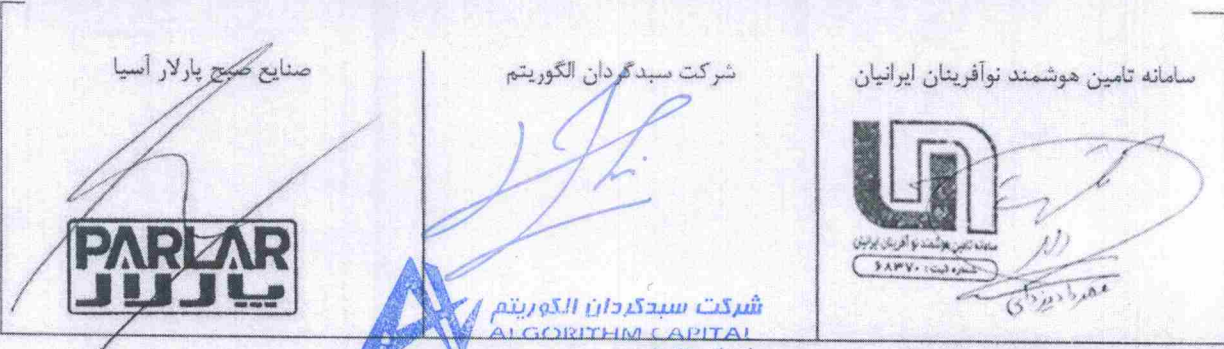 سامانه تامین هوشمند نوآفرینان ایرانیان
سامانه تامین هوشمند نوآفرینان ایرانیان
شماره ثبت: ۶۸۳۷۰
شرکت سبدگردان الگوریتم
شرکت سبدگردان الگوریتم
ALGORITHM CAPITAL
صنایع صبح پارلار آسیا
PARLAR
پارلار